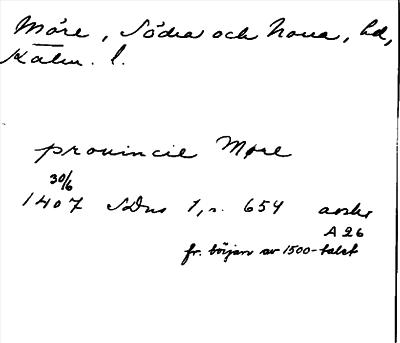 Möre, Södra och Norra, hd,
Kalm. l.
provincie Møre
30/6
1407 SDns 1, s. 654 avskr
A 26
fr. början av 1500-talet